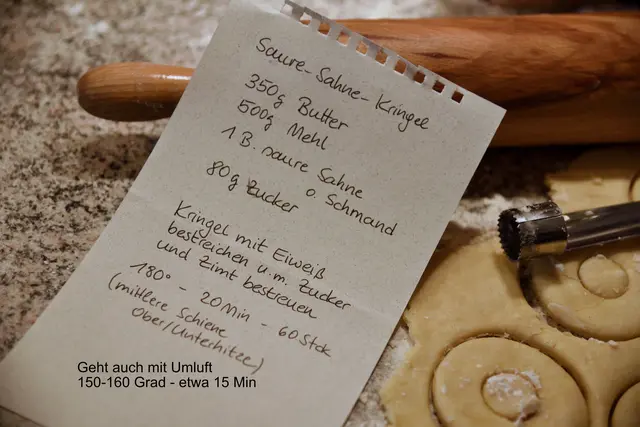 Saure-Sahne-Kringel
350g Butter
500g Mehl
1 B. saure Sahne
o. Schmand
80g Zucker
Kringel mit Eiweiß
bestreichen u. m. Zucker
und Zimt bestreuen
180° - 20 Min - 60 Stck
(mittlere Schiene
Ober/Unterhitze)
Geht auch mit Umluft
150-160 Grad - etwa 15 Min